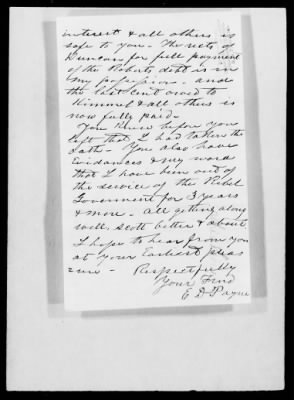 interest & all others is
safe to you - The note of
Duncan for full payment
of the Roberts debt is in
my possession - and
the last Cent owed to
Kimmel & all others is
now fully paid.
You Knew before you
left that I had taken the
Oath - You also have
Evidances & my word
that I have been out of
the service of the Rebel
Goverment for 3 years
& more - All getting along
well, Scott better & about
I hope to hear from you
at your Earliest pleas
=ure - Respectfully
Your Frnd
E D Payne